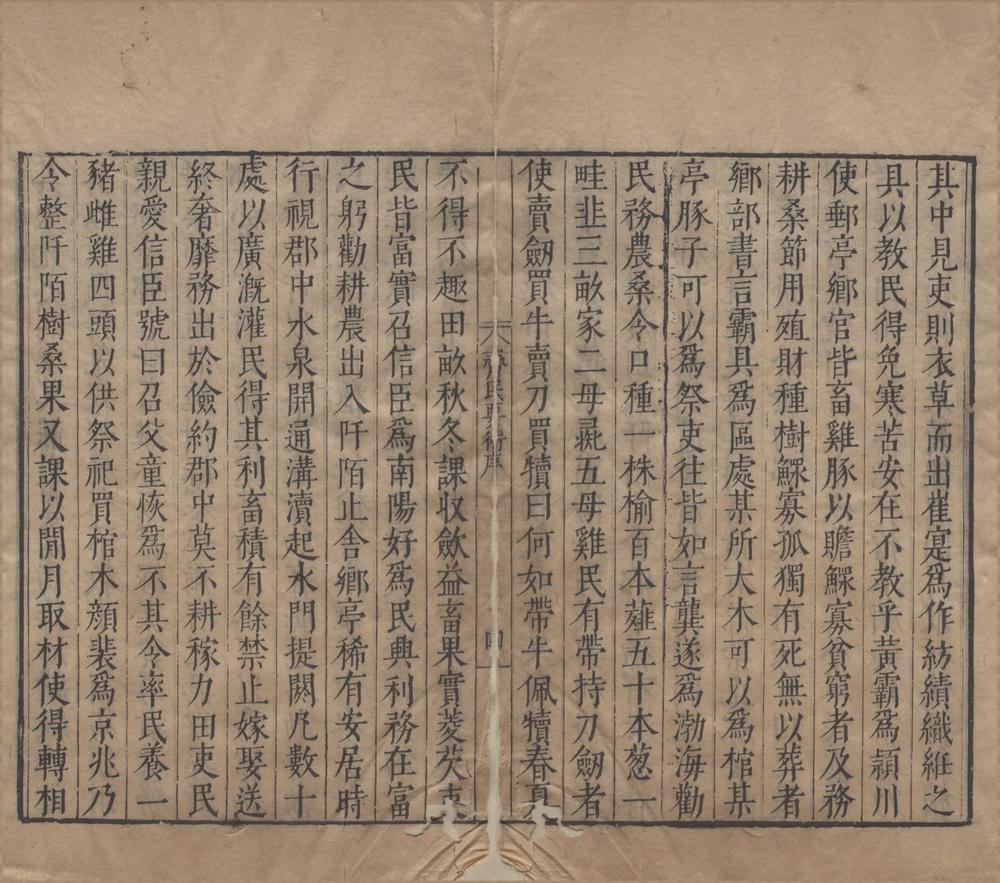 其中見吏則衣草而出崔寔爲作紡績織絍之
具以教民得免寒苦安在不教乎黃霸爲頴川
使郵亭鄉官皆畜雞豚以贍鰥寡貧窮者及務
耕桑節用殖財種樹鰥寡孤獨有死無以葬者
鄉部書言霸具爲區處某所大木可以爲棺某
亭豚子可以爲祭吏往皆如言龔遂爲渤海勸
民務農桑令口種一株榆百本薤五十本葱一
畦韭三畝家二母彘五母雞民有帶持刀劒者
使賣劒買牛賣刀買犢曰何如帶牛佩犢春夏
齊民要術序
四
不得不趣田畝秋冬課收斂益畜果實菱芡吏
民皆富實召信臣爲南陽好爲民興利務在富
之躬勸耕農出入阡陌止舍鄉亭稀有安居時
行視郡中水泉開通溝瀆起水門提閼凡數十
處以廣溉灌民得其利畜積有餘禁止嫁娶送
終奢靡務出於儉約郡中莫不耕稼力田吏民
親愛信臣號曰召父童恢爲不其令率民養一
豬雌雞四頭以供祭祀買棺木顏裴爲京兆乃
令整阡陌樹桑果又課以閒月取材使得轉相